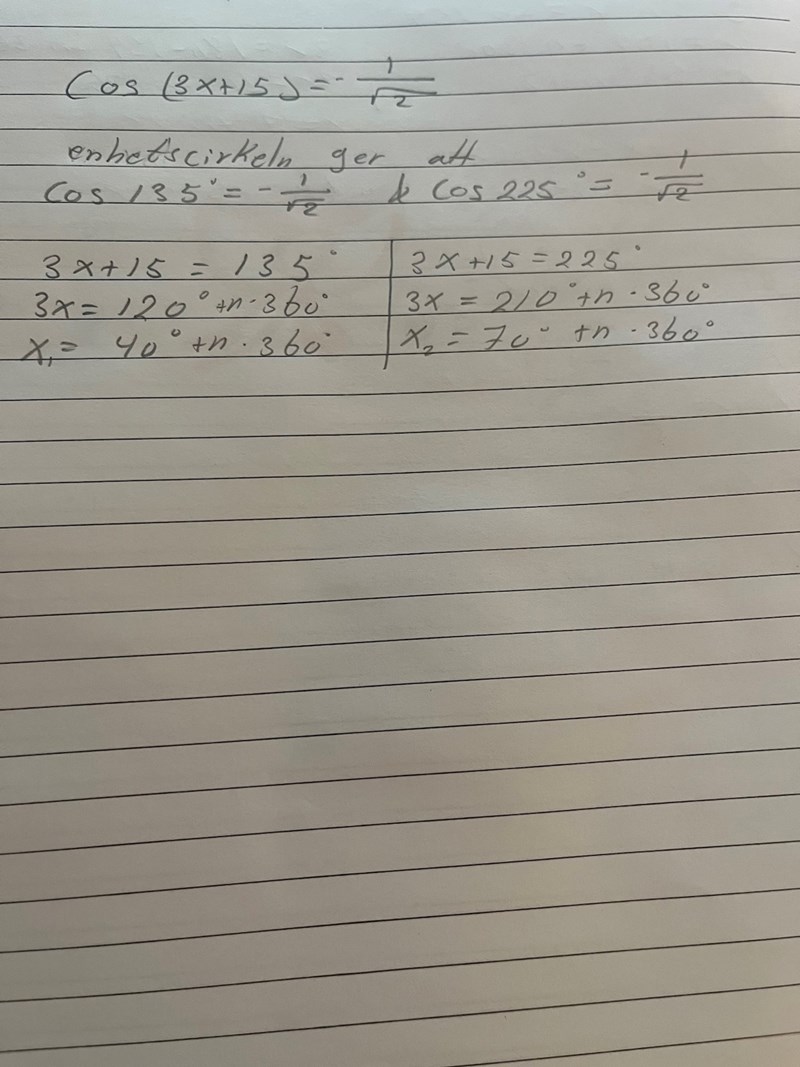 Cos (3x+15) = -1/√2
enhetscirkeln ger att
Cos 135° = -1/√2 & Cos 225° = -1/√2
3x+15 = 135° | 3x+15 = 225°
3x = 120° +n·360° | 3x = 210° +n·360°
x₁ = 40° +n·360° | x₂ = 70° +n·360°